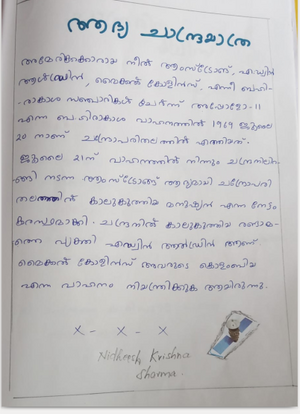 ആദ്യ ചാന്ദ്രയാത്ര
അമേരിക്കക്കാരായ നീൽ ആംസ്ട്രോങ്, എഡ്വിൻ
ആൾഡ്രിൻ, മൈക്കൽ കോളിൻസ് എന്നീ ബഹി-
-രാകാശ സഞ്ചാരികൾ ചേർന്ന് അപ്പോളോ-11
എന്ന ബഹിരാകാശ വാഹനത്തിൽ 1969 ജൂലൈ
20 നാണ് ചന്ദ്രോപരിതലത്തിൽ എത്തിയത്.
ജൂലൈ 21ന് വാഹനത്തിൽ നിന്നും ചന്ദ്രനിലിറ-
ങ്ങി നടന്ന ആംസ്ട്രോങ്ങ് ആദ്യമായി ചന്ദ്രോപരി
തലത്തിൽ കാലുകുത്തിയ മനുഷ്യൻ എന്ന നേട്ടം
കരസ്ഥമാക്കി. ചന്ദ്രനിൽ കാലുകുത്തിയ രണ്ടാമ-
ത്തെ വ്യക്തി എഡ്വിൻ ആൽഡ്രിൻ ആണ്
മൈക്കൽ കോളിൻസ് അവരുടെ കൊളംബിയ
എന്ന വാഹനം നിയന്ത്രിക്കുക ആയിരുന്നു.
x - x - x
Nidheesh Krishna
Sharma.